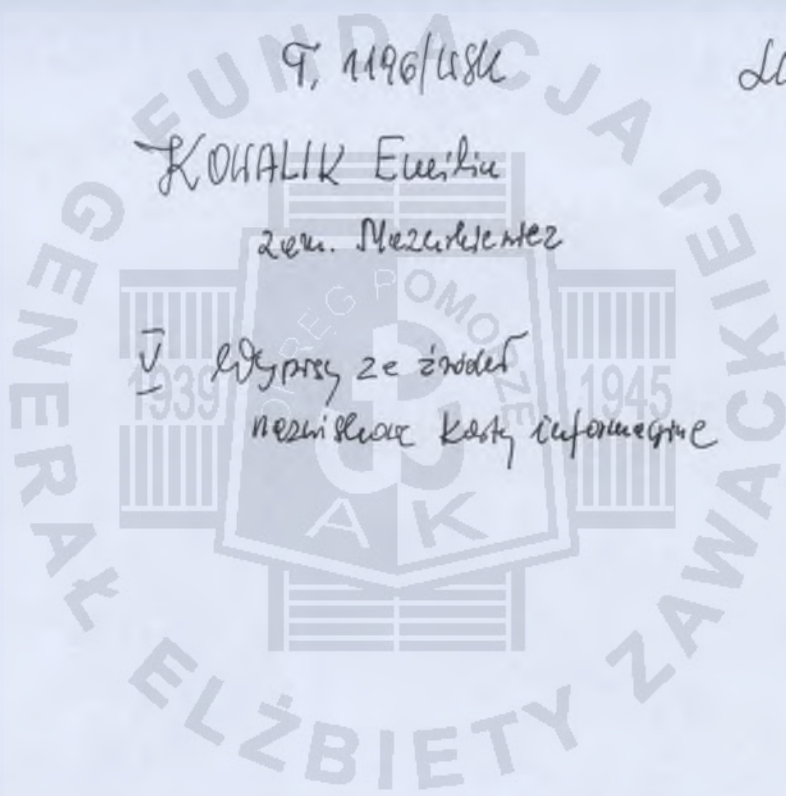 T. 1196/WSK
KOWALIK Emilia
zam. Mazurkiewicz
V Wypisy ze źródeł
nazwiskowe karty informacyjne
FUNDACJA GENERAŁ ELŻBIETY ZAWACKIEJ
OKRĘG POMORZE
1939 1945
AK